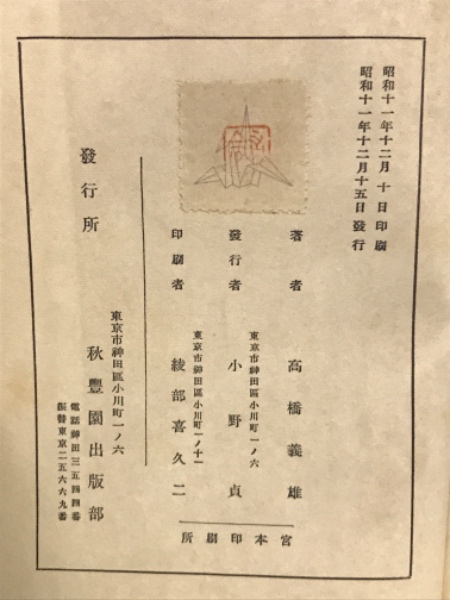 昭和十一年十二月 十 日印刷
昭和十一年十二月十五日發行
著者 高橋義雄
東京市神田區小川町一ノ六
發行者 小野貞
東京市神田區小川町一ノ十一
印刷者 綾部喜久二
宮本印刷所
發行所
東京市神田區小川町一ノ六
秋豐園出版部
電話神田三五四四番
振替東京二五六六九番